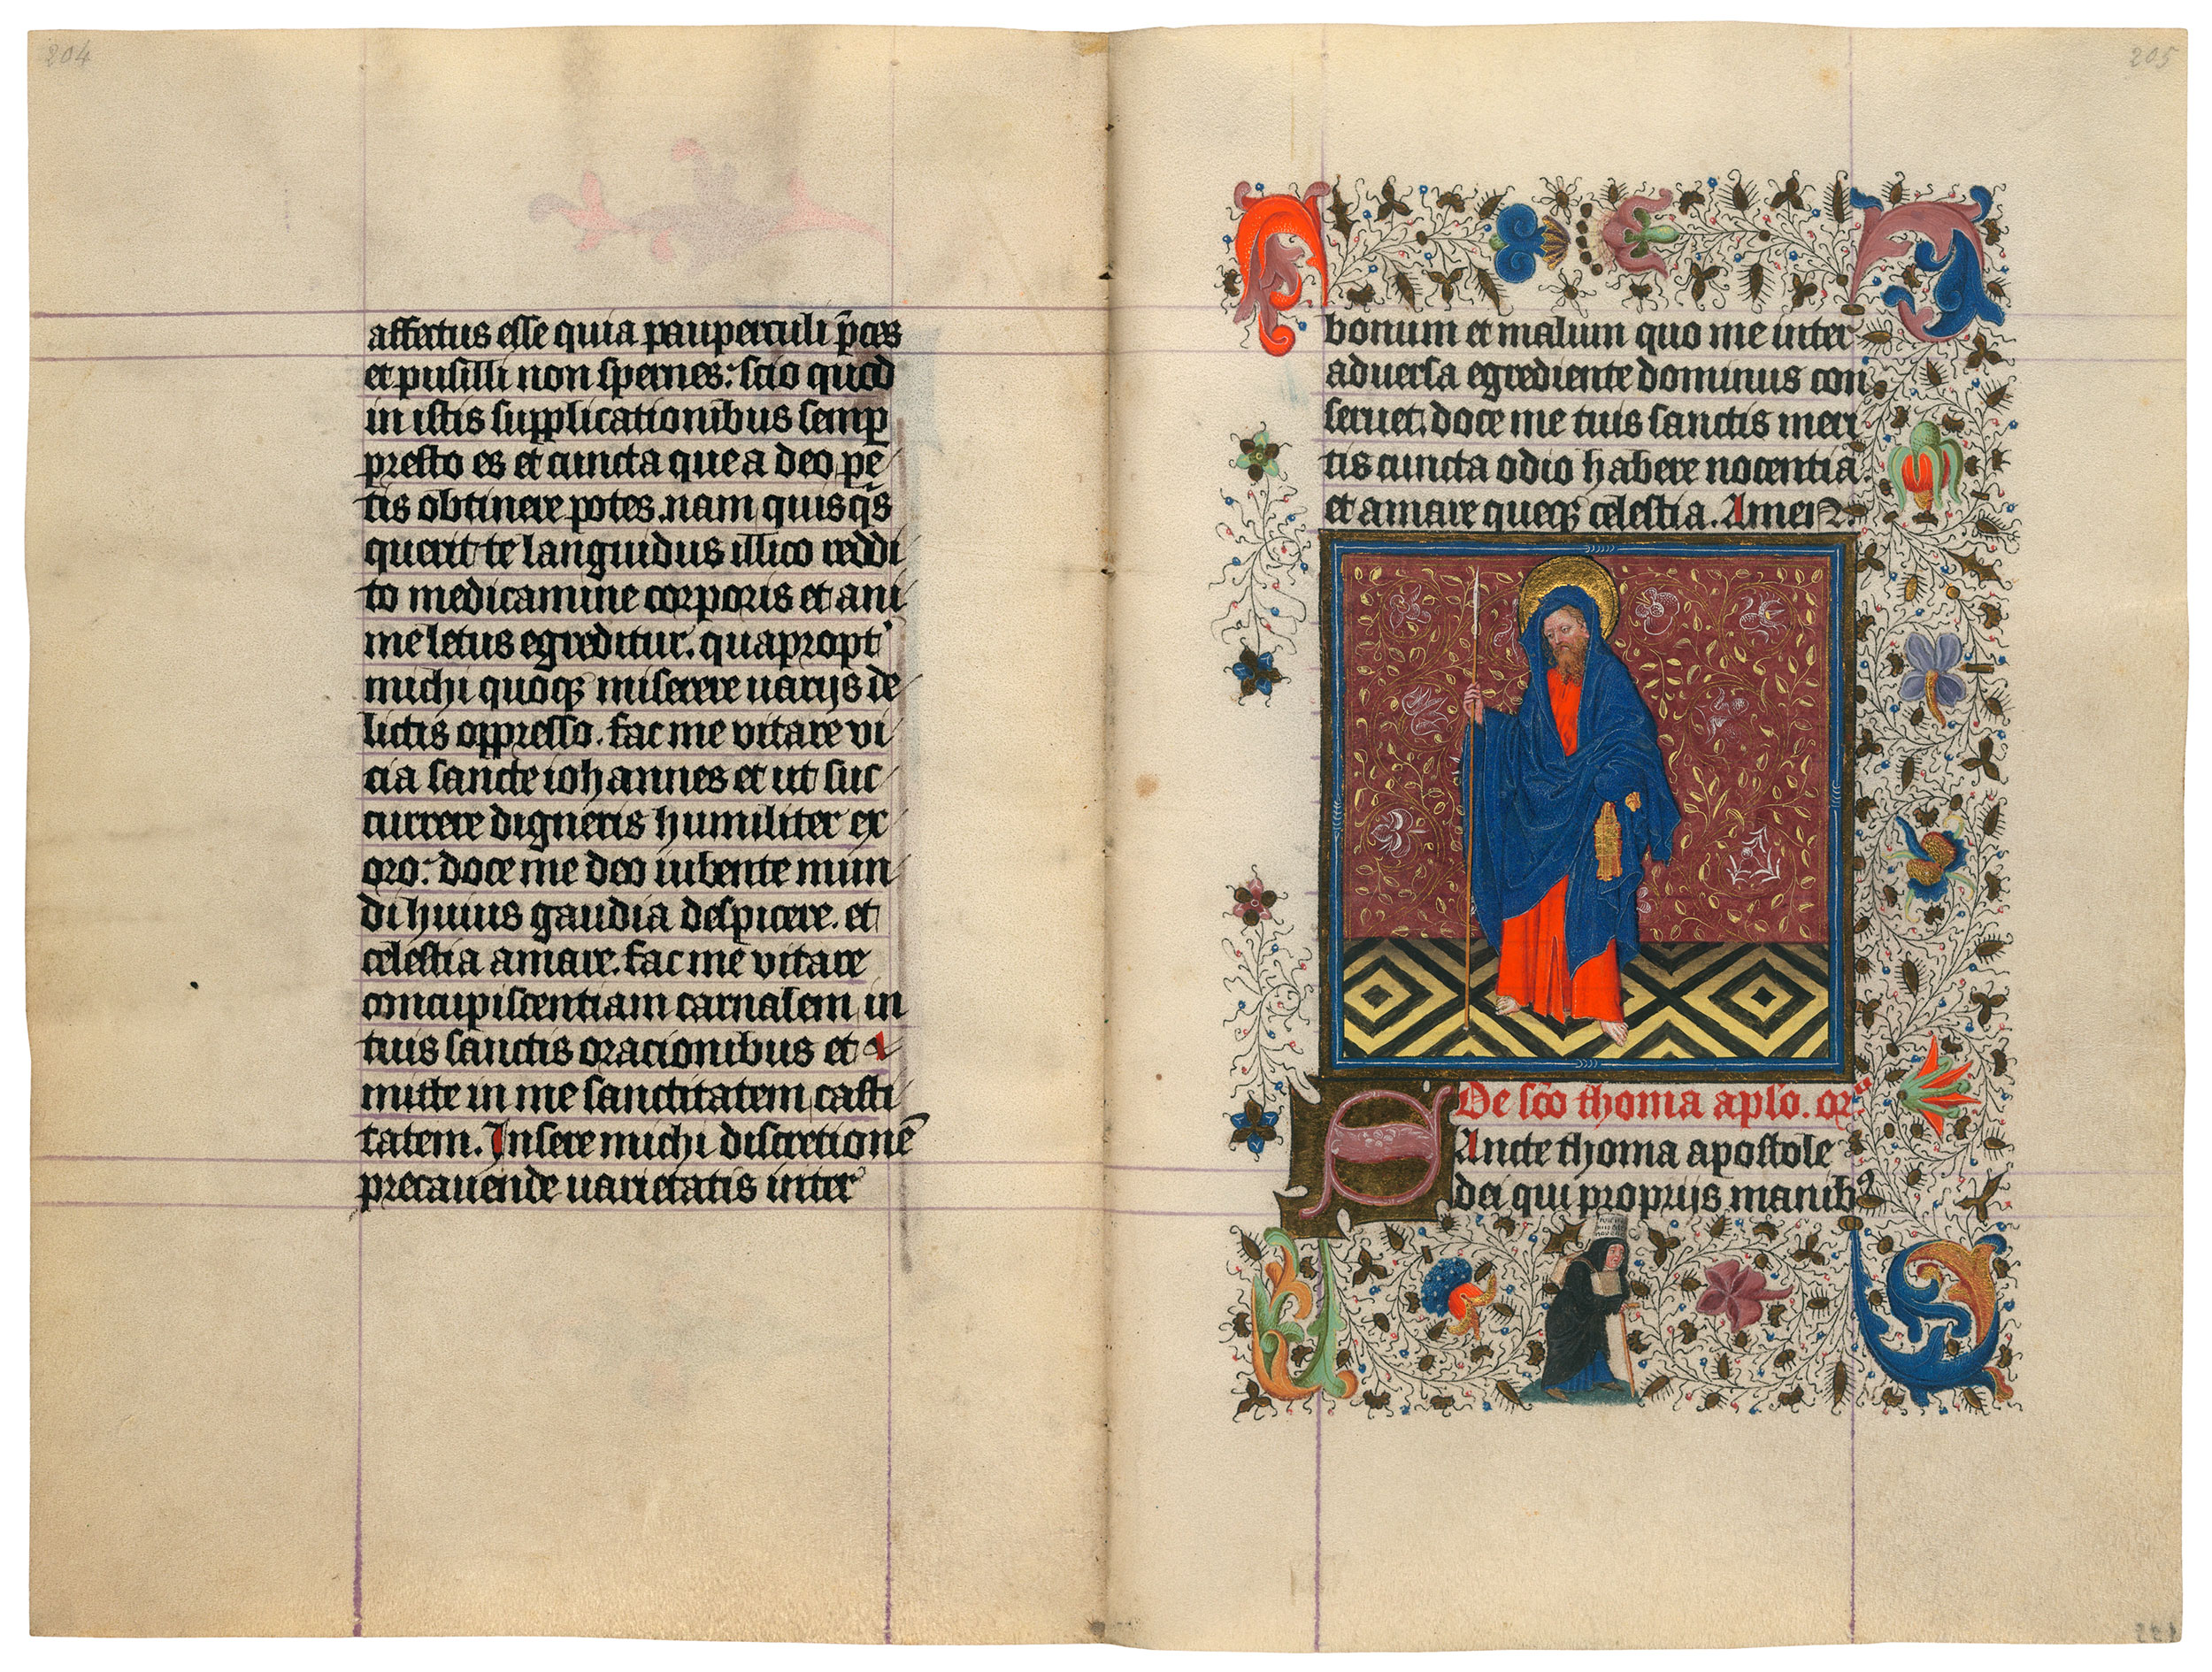 204
affectus esse quia pauperculi p̄ces
et pusilli non spernes: scio quod
in istis supplicationibus semp
presto es et cuncta que a deo pe
tis obtinere potes. nam quisq̄s
querit te languidus illico reddi
to medicamine corporis et ani
me letus egreditur. quapropt
michi quoqꝫ miserere uarijs de
lictis oppresso. fac me vitare vi
cia sancte iohannes et ut suc
currere digneris humiliter ex
oro: doce me deo iubente mun
di huius gaudia despicere. et
celestia amare. fac me vitare
concupiscentiam carnalem in
tuis sanctis oracionibus et
mitte in me sanctitatem casti
tatem. Insere michi discretionē
precauende uarietatis inter
205
bonum et malum quo me inter
aduersa egrediente dominus con
seruet. doce me tuis sanctis meri
tis cuncta odio habere nocentia.
et amare queqꝫ celestia. Amen.
De sc̄o thoma aplo. or
Sancte thoma apostole
dei qui proprijs manib